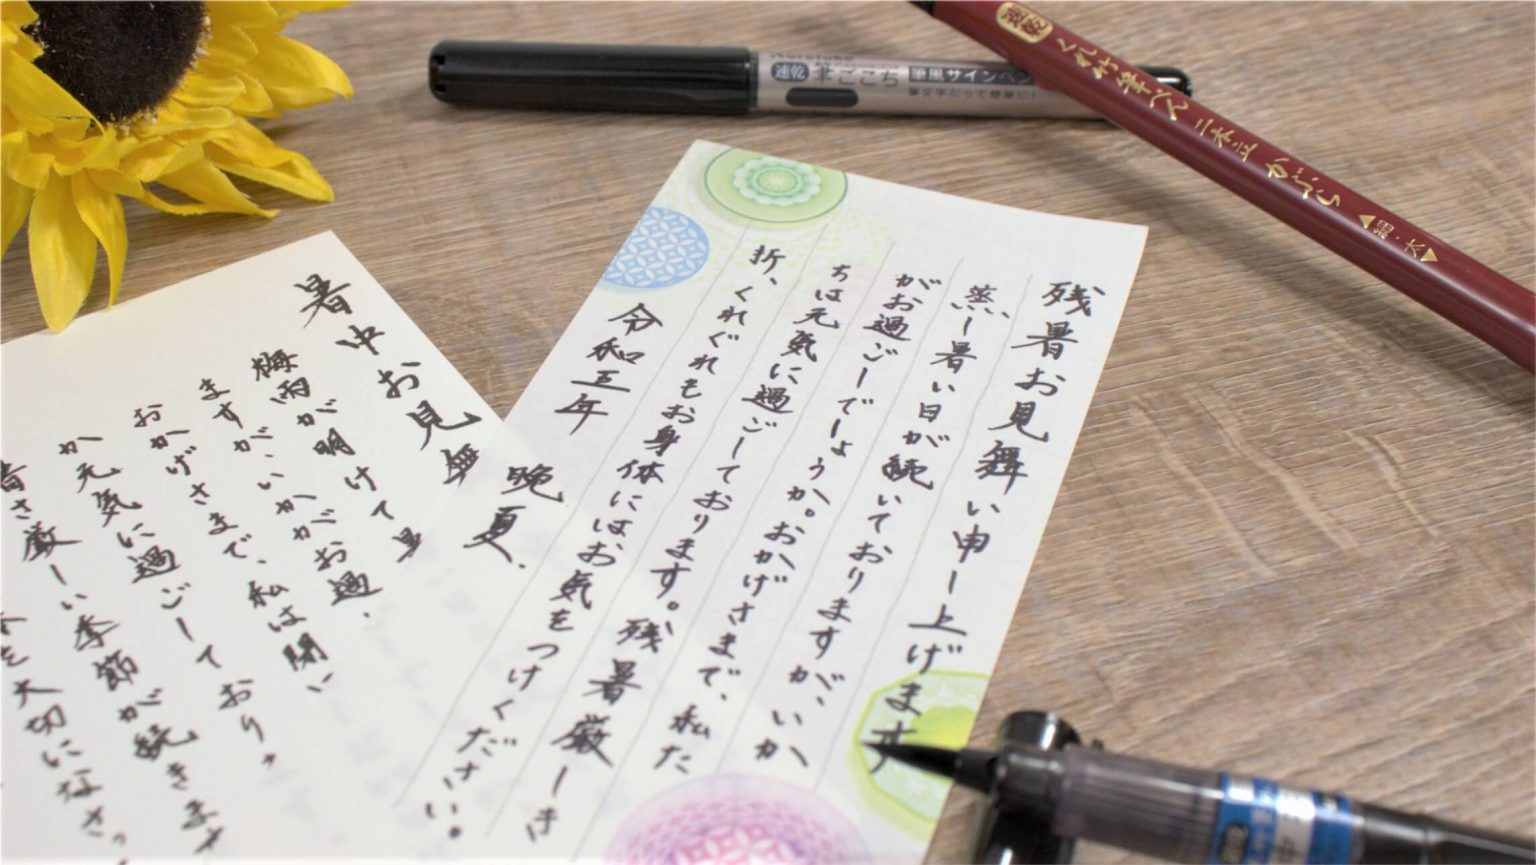 残暑お見舞い申し上げます
蒸し暑い日が続いておりますが、いか
がお過ごしでしょうか。おかげさまで、私た
ちは元気に過ごしております。残暑厳しき
折、くれぐれもお身体にはお気をつけください。
令和五年
晩夏
暑中お見舞
梅雨が明けて
ますが、いかがお過
おかげさまで、私は
か元気に過ごしており
暑さ厳しい季節が続きます
を大切になさっ
速乾 筆ごこち 筆風サインペン
速乾 くれ竹筆ぺん 二本立 かぶら 細・太